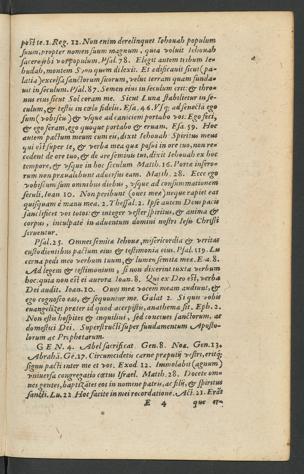 poste.1.Reg. 12. Non enim derelinquet Iehouah populum
suum, propter nomen suum magnum, quia voluit Iehouah
facere sibi vos populum. Psal. 78. Elegit autem tribum Ie-
hudah, montem Syon quem dilexit. Et edificauit sicut (pa-
latia) excelsa sanctorum suorum, velut terram quam funda-
uit in seculum. Psal. 87. Semen eius in seculum erit: & thro-
nus eius sicut Sol coram me. Sicut Luna stabilietur in se-
culum, & testis in cœlo fidelis. Esa. 46. Vsq; ad senecta ego
sum (vobiscum) & vsque ad caniciem portabo vos: Ego feci,
& ego feram, ego quoque portabo & eruam. Esa. 59. Hoc
autem pactum meum cum eis, dixit Iehouah Spiritus meus
qui est super te, & verba mea quæ posui in ore tuo, non re-
cedent de ore tuo, & de ore seminis tui, dixit Iehouah ex hoc
tempore, & vsque in hoc seculum Matth. 16. Portæ infero-
rum non prævalebunt aduersus eam. Matth. 28. Ecce ego
vobiscum sum omnibus diebus, vsque ad consummationem
seculi. Ioan 10. Non peribunt (oues meæ) neque rapiet eas
quisquam è manu mea. 2. Thessal. 2. Ipse autem Deus pacis
sanctificet vos totos: & integer vester spiritus, & anima &
corpus, inculpatè in aduentum domini nostri Iesu Christi
seruentur.
Psal. 25. Omnes semitæ Iehouæ, misericordia & veritas
custodientibus pactum eius & testimonia eius. Psal. 119. Lu
cerna pedi meo verbum tuum, & lumen semitæ meæ. Esa. 8.
Ad legem & testimonium, si non dixerint iuxta verbum
hoc: quia non est ei aurora Ioan. 8. Qui ex Deo est, verba
Dei audit. Ioan. 10. Oues meæ vocem meam audiunt, &
ego cognosco eas, & sequuntur me. Galat 1. Si quis vobis
euangelizet præter id quod accepistis, anathema sit. Eph. 2.
Non estis hospites & inquilini, sed conciues sanctorum, ac
domestici Dei. Superstructi super fundamentum Aposto-
lorum ac Prophetarum.
GEN. 4. Abel sacrificat. Gen. 8. Noe. Gen. 13.
Abrahã. Ge. 17. Circumcidetis carnẽ preputij vestri, eritq;
signũ pacti inter me et vos. Exod. 12. Immolabit (agnum)
vniuersa congregatio cœtus Israel. Matth. 28. Docete om-
nes gentes, baptizãtes eos in nomine patris, ac filij, & spiritus
sancti. Lu. 22. Hoc facite in mei recordationẽ. Act. 21. Erãt
E 4 que er-